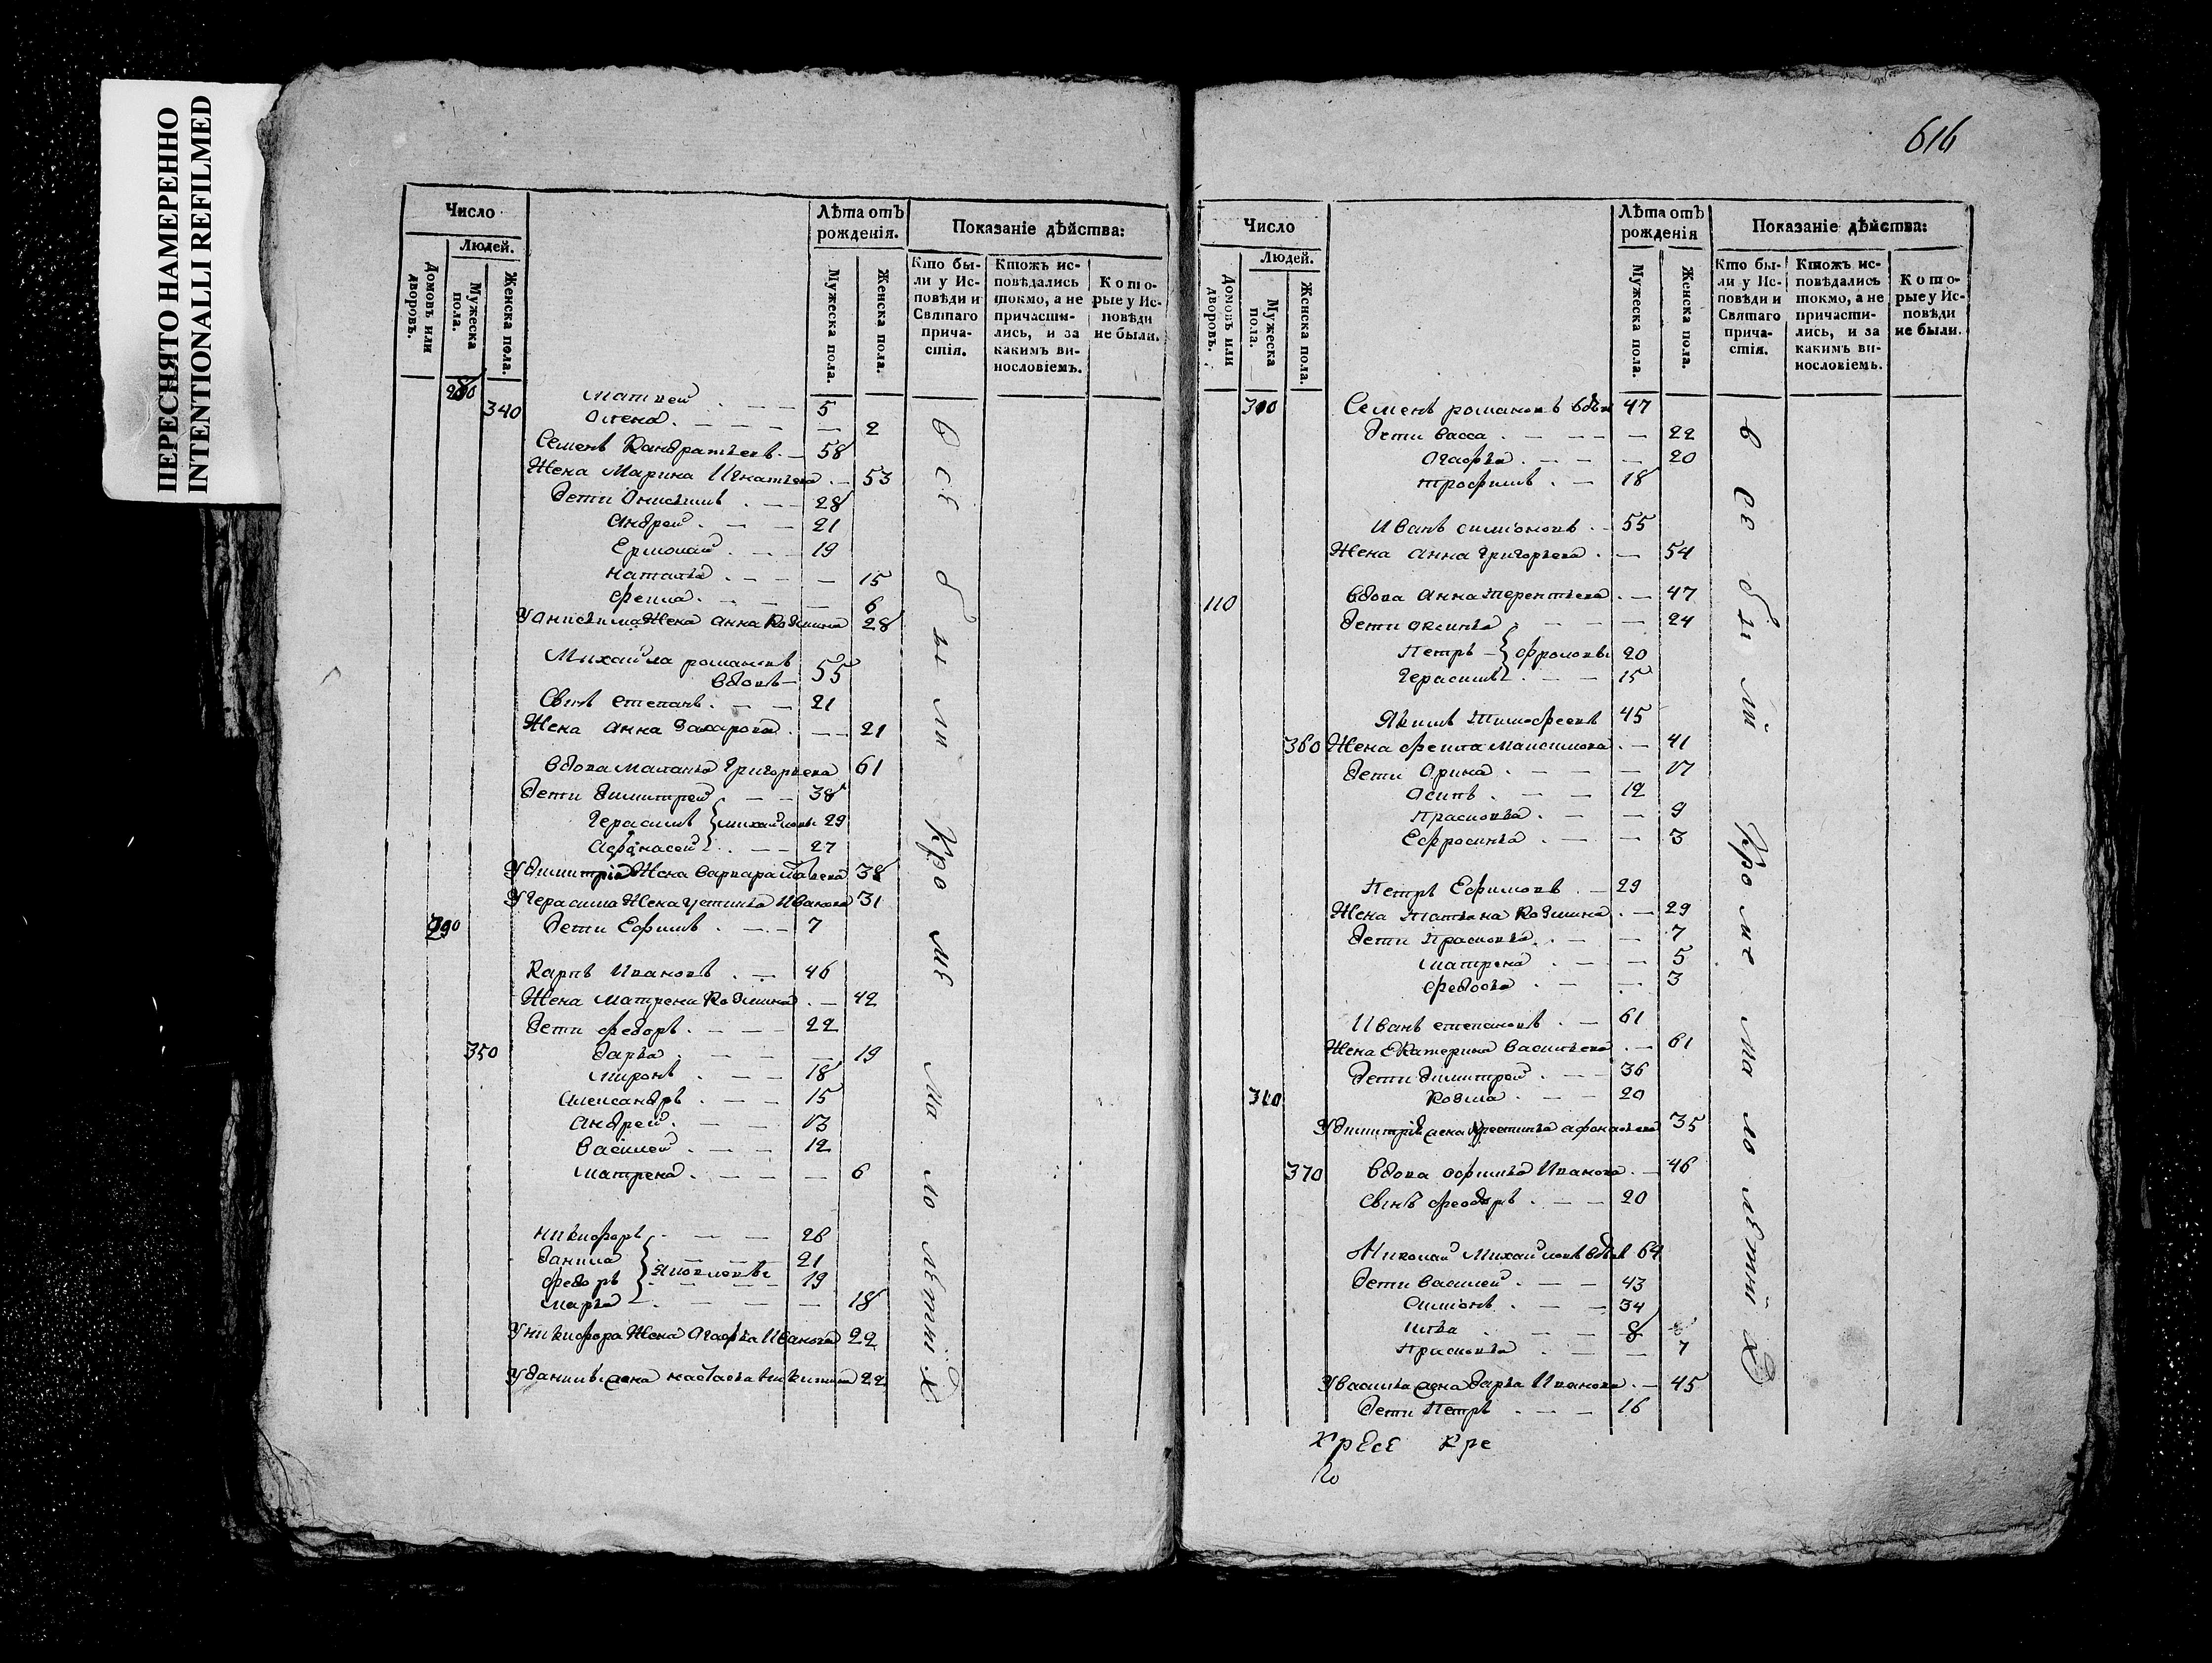 ПЕРЕСНЯТО НАМЕРЕННО
INTENTIONALLI REFILMED
Число
Людей.
Домовъ или дворовъ.
Мужеска пола.
Женска пола.
Лѣта отъ рожденія.
Мужеска пола.
Женска пола.
Показаніе дѣйства:
Кто бы-
ли у Ис-
повѣди и
Святаго
прича-
стія.
Ктожъ ис-
повѣдались
токмо, а не
причасти-
лись, и за
какимъ ви-
нословіемъ.
Кото-
рые у Ис-
повѣди
не были.
Матвей 5
340 Олена 2
Семенъ Кандратьевъ 58
Жена Марина Игнатьева 53
дети Онисимъ 28
Андрей 21
Ермолай 19
Наталья 15
Фекла 6
У Анисима Жена Анна Козмина 28
Михайла романовъ
вдовъ 55
Сынъ Степанъ 21
Жена Анна Захарова 21
вдова Маланья Григорьева 61
дети димитрей 38
Герасимъ Михайловы 29
Афонасей 27
У димитрія Жена варвара 38
У Герасима Жена Устинья Иванова 31
290 дети Ефимъ 7
Карпъ Ивановъ 46
Жена Матрена Козмина 42
дети Федоръ 22
350 дарья 19
Миронъ 18
Александръ 15
Андрей 13
василей 12
Матрена 6
Никифоръ 26
данила 21
федоръ 19
марья 18
У Никифора Жена Агафья Иванова 22
У данилы жена настасья Никитина 22
все были кроме малолетних
616
Число
Людей.
Домовъ или дворовъ.
Мужеска пола.
Женска пола.
Лѣта отъ рожденія
Мужеска пола.
Женска пола.
Показаніе дѣйства:
Кто бы-
ли у Ис-
повѣди и
Святаго
прича-
стія.
Ктожъ ис-
повѣдались
токмо, а не
причасти-
лись, и за
какимъ ви-
нословіемъ.
Кото-
рые у Ис-
повѣди
не были.
300 Семенъ романовъ вдовъ 47
дети васса 22
Агафья 20
трофимъ 18
Иванъ симіоновъ 55
Жена Анна Григорьева 54
110 вдова Анна терентьева 47
дети Аксинья 24
Петръ Фроловы 20
Герасимъ 15
Якимъ Тимофеевъ 45
360 Жена фекла Максимова 41
дети Орина 17
Осипъ 12
Прасковья 9
Ефросинья 3
Петръ Ефимовъ 29
Жена Татьяна Козмина 29
дети Прасковья 7
Матрена 5
федосья 3
Иванъ степановъ 61
Жена Екатерина васильева 61
дети димитрей 36
310 Козма 20
У димитрія жена Устинья афонасьева 35
370 вдова софья Иванова 46
Сынъ феодоръ 20
Николай Михайловъ вдовъ 64
дети василей 43
Симіонъ 34
Илья 8
Прасковья 7
У василья жена дарья Иванова 45
дети Петръ 16
все были кроме малолетних